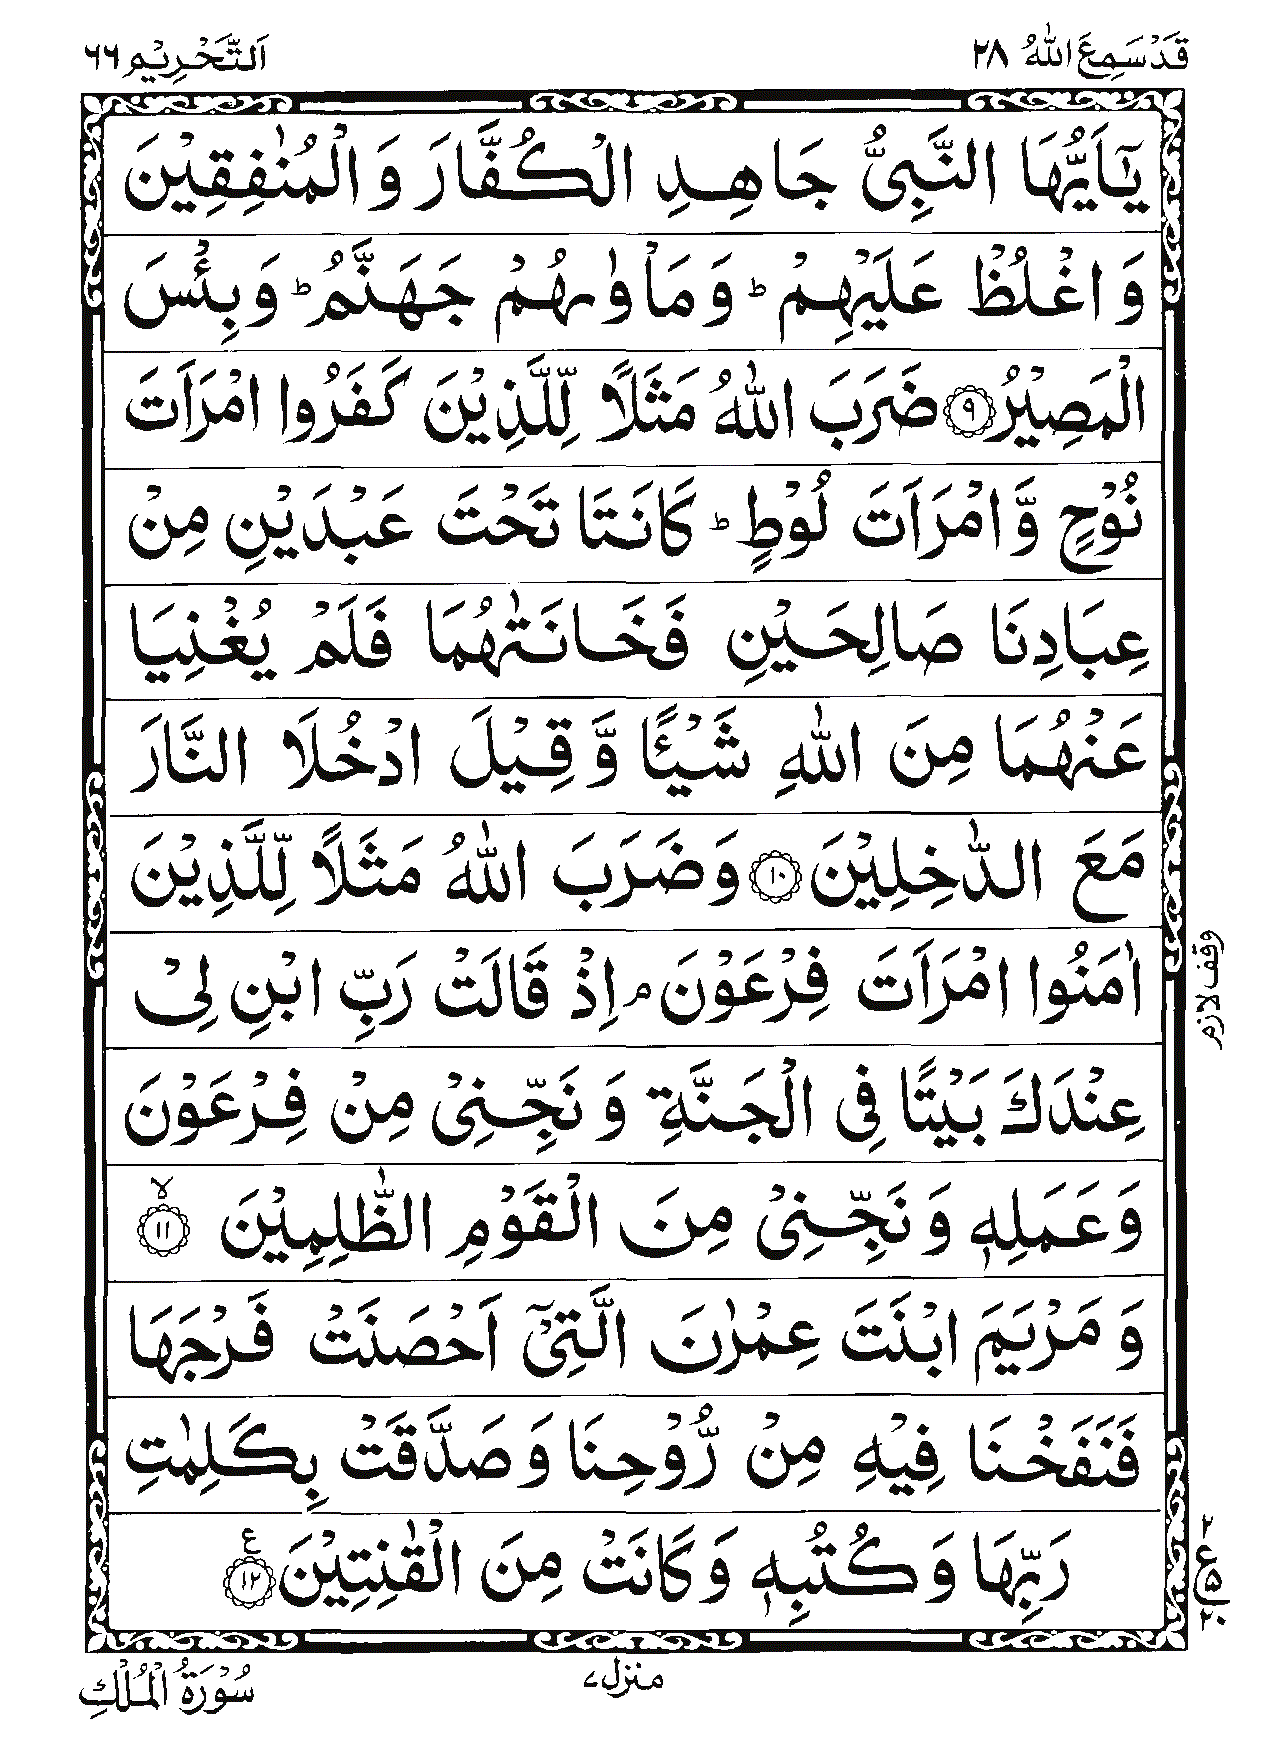 قَدْ سَمِعَ اللّٰهُ ٢٨
اَلتَّحْرِيْم ٦٦
يٰٓاَيُّهَا النَّبِيُّ جَاهِدِ الْكُفَّارَ وَالْمُنٰفِقِيْنَ
وَاغْلُظْ عَلَيْهِمْ ؕ وَمَاْوٰىهُمْ جَهَنَّمُ ؕ وَبِئْسَ
الْمَصِيْرُ ۹ ضَرَبَ اللّٰهُ مَثَلًا لِّلَّذِيْنَ كَفَرُوا امْرَاَتَ
نُوْحٍ وَّامْرَاَتَ لُوْطٍ ؕ كَانَتَا تَحْتَ عَبْدَيْنِ مِنْ
عِبَادِنَا صَالِحَيْنِ فَخَانَتٰهُمَا فَلَمْ يُغْنِيَا
عَنْهُمَا مِنَ اللّٰهِ شَيْـًٔا وَّقِيْلَ ادْخُلَا النَّارَ
مَعَ الدّٰخِلِيْنَ ۱۰ وَضَرَبَ اللّٰهُ مَثَلًا لِّلَّذِيْنَ
اٰمَنُوا امْرَاَتَ فِرْعَوْنَ ۘ اِذْ قَالَتْ رَبِّ ابْنِ لِيْ
وقف لازم
عِنْدَكَ بَيْتًا فِي الْجَنَّةِ وَنَجِّنِيْ مِنْ فِرْعَوْنَ
وَعَمَلِهٖ وَنَجِّنِيْ مِنَ الْقَوْمِ الظّٰلِمِيْنَ ۙ ۱۱
وَمَرْيَمَ ابْنَتَ عِمْرٰنَ الَّتِيْٓ اَحْصَنَتْ فَرْجَهَا
فَنَفَخْنَا فِيْهِ مِنْ رُّوْحِنَا وَصَدَّقَتْ بِكَلِمٰتِ
رَبِّهَا وَكُتُبِهٖ وَكَانَتْ مِنَ الْقٰنِتِيْنَ ۱۲ ع
منزل ۷
سُوْرَةُ الْمُلْكِ